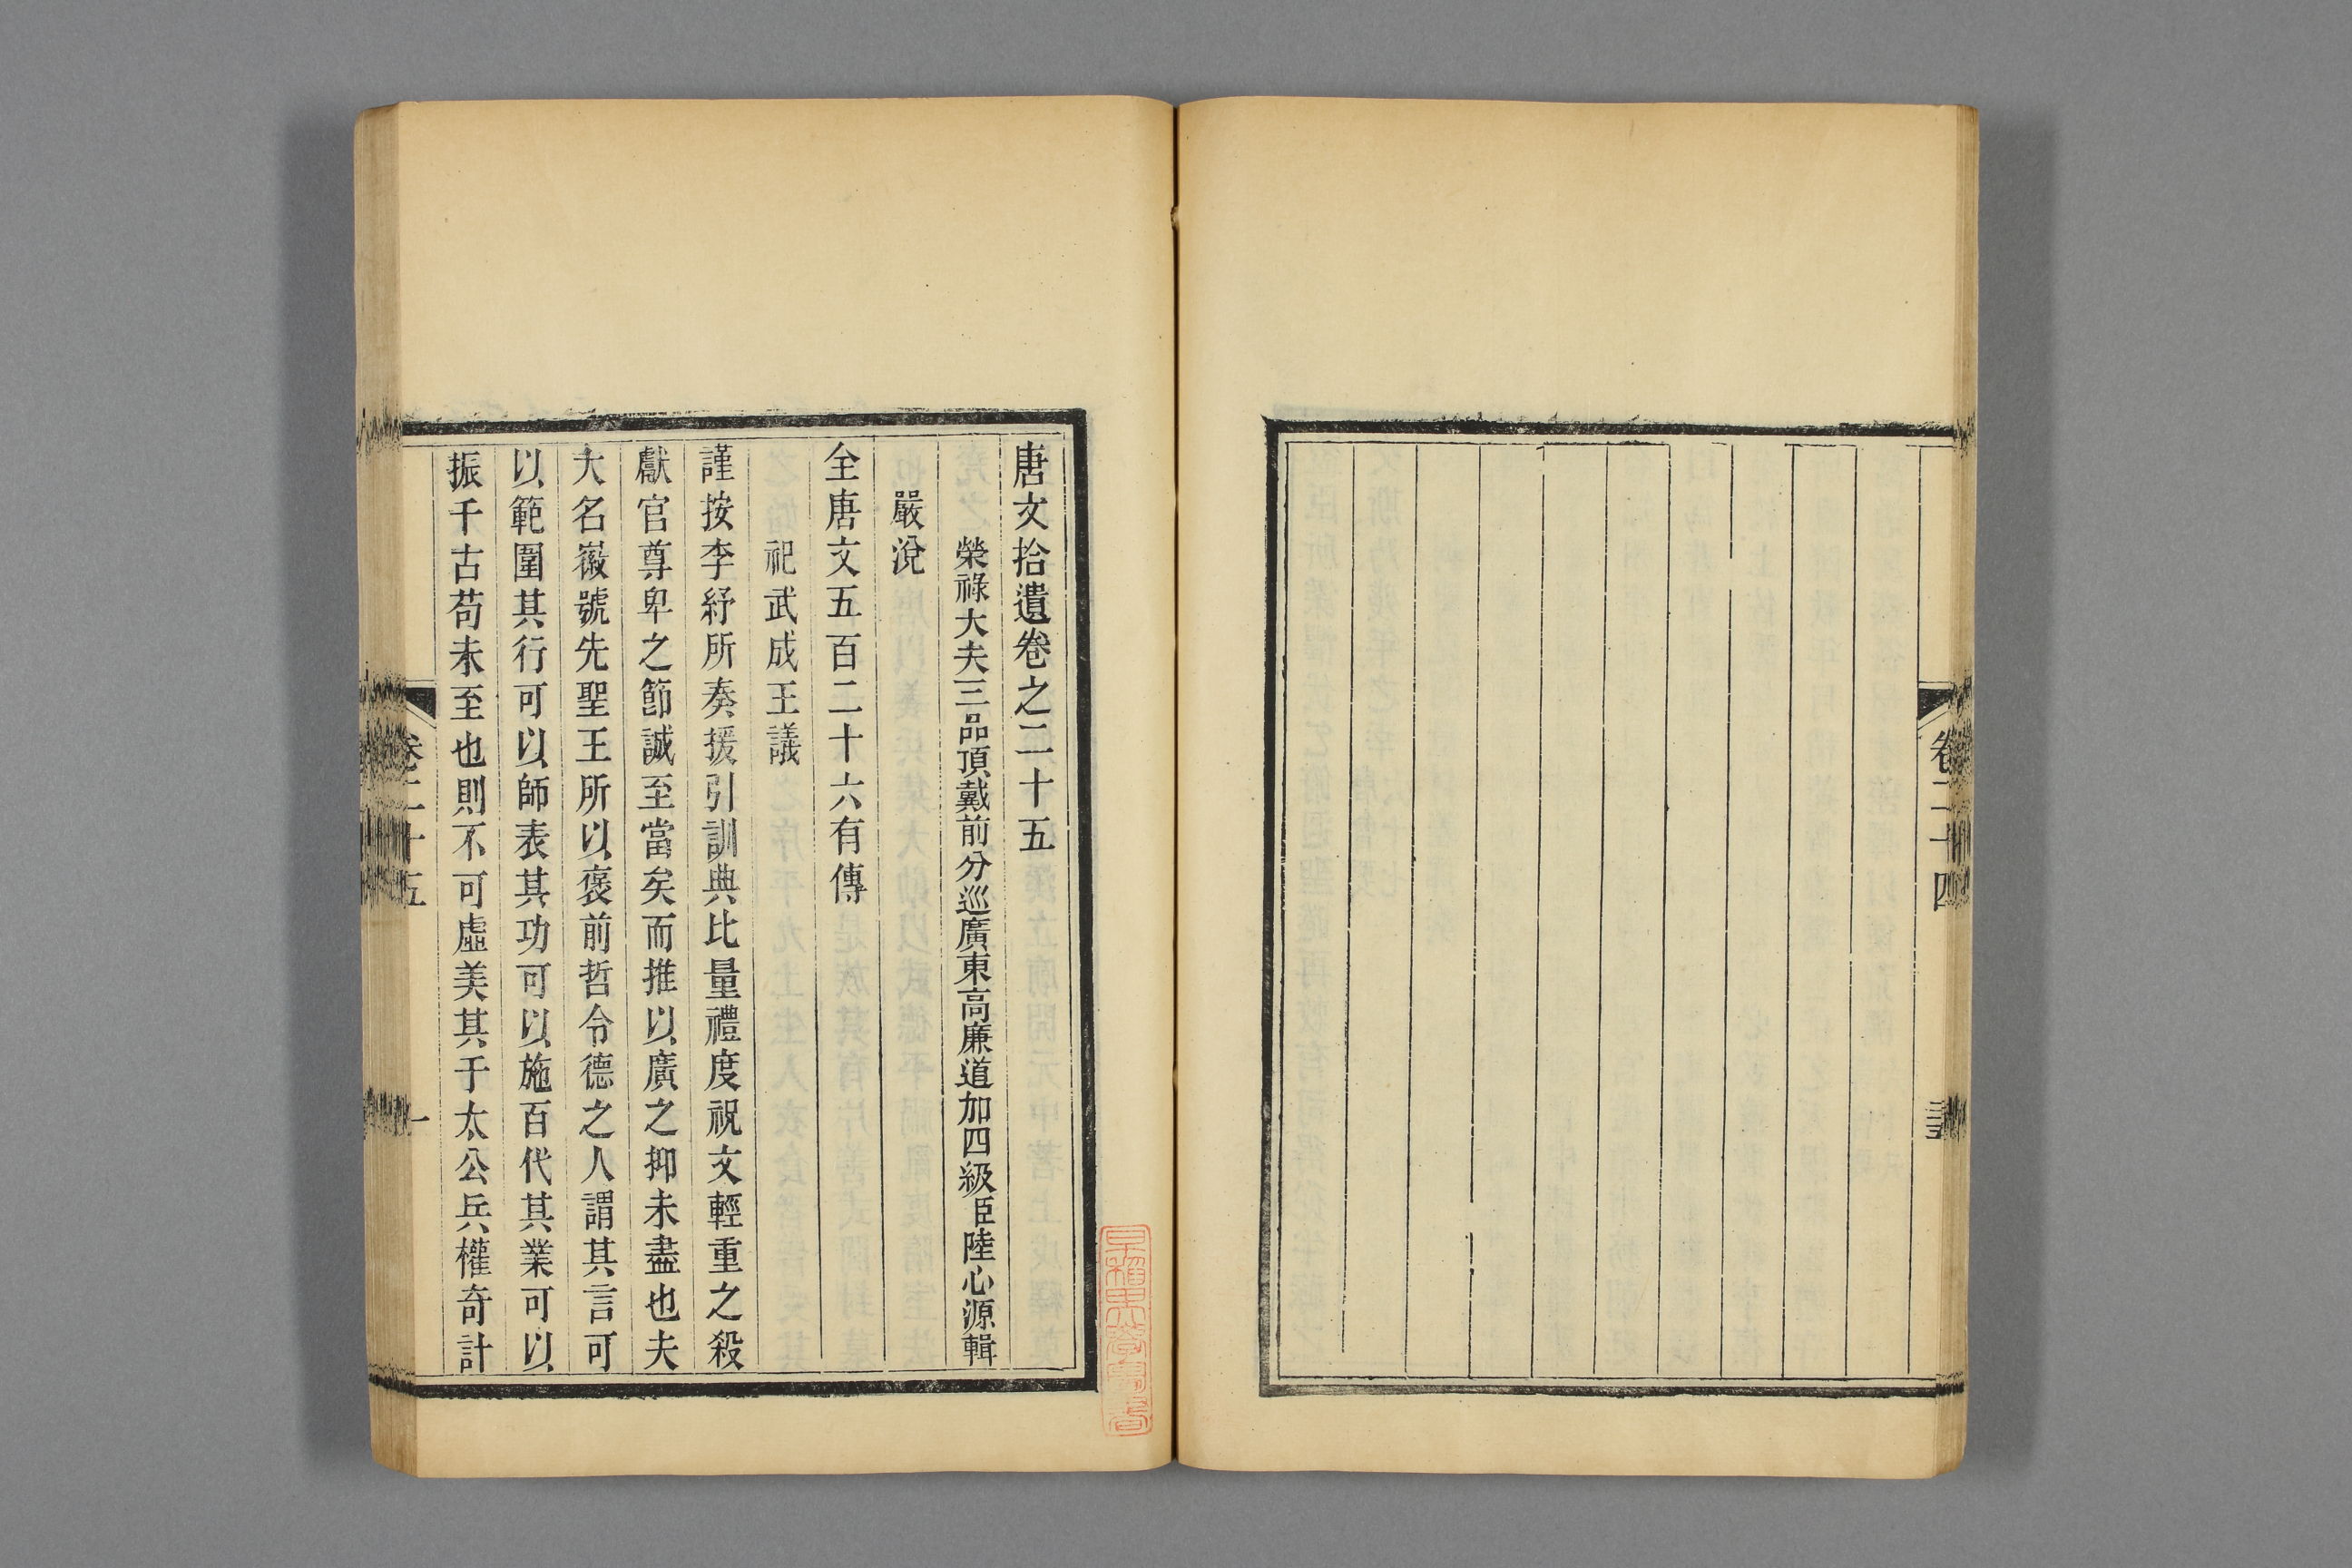 卷二十四
唐文拾遺卷之二十五
榮祿大夫三品頂戴前分巡廣東高廉道加四級臣陸心源輯
嚴涗
全唐文五百二十六有傳
祀武成王議
謹按李紓所奏援引訓典比量禮度祝文輕重之殺
獻官尊卑之節誠至當矣而推以廣之抑未盡也夫
大名徽號先聖王所以褒前哲令德之人謂其言可
以範圍其行可以師表其功可以施百代其業可以
振千古苟未至也則不可虛美其于太公兵權奇計
卷二十五
一